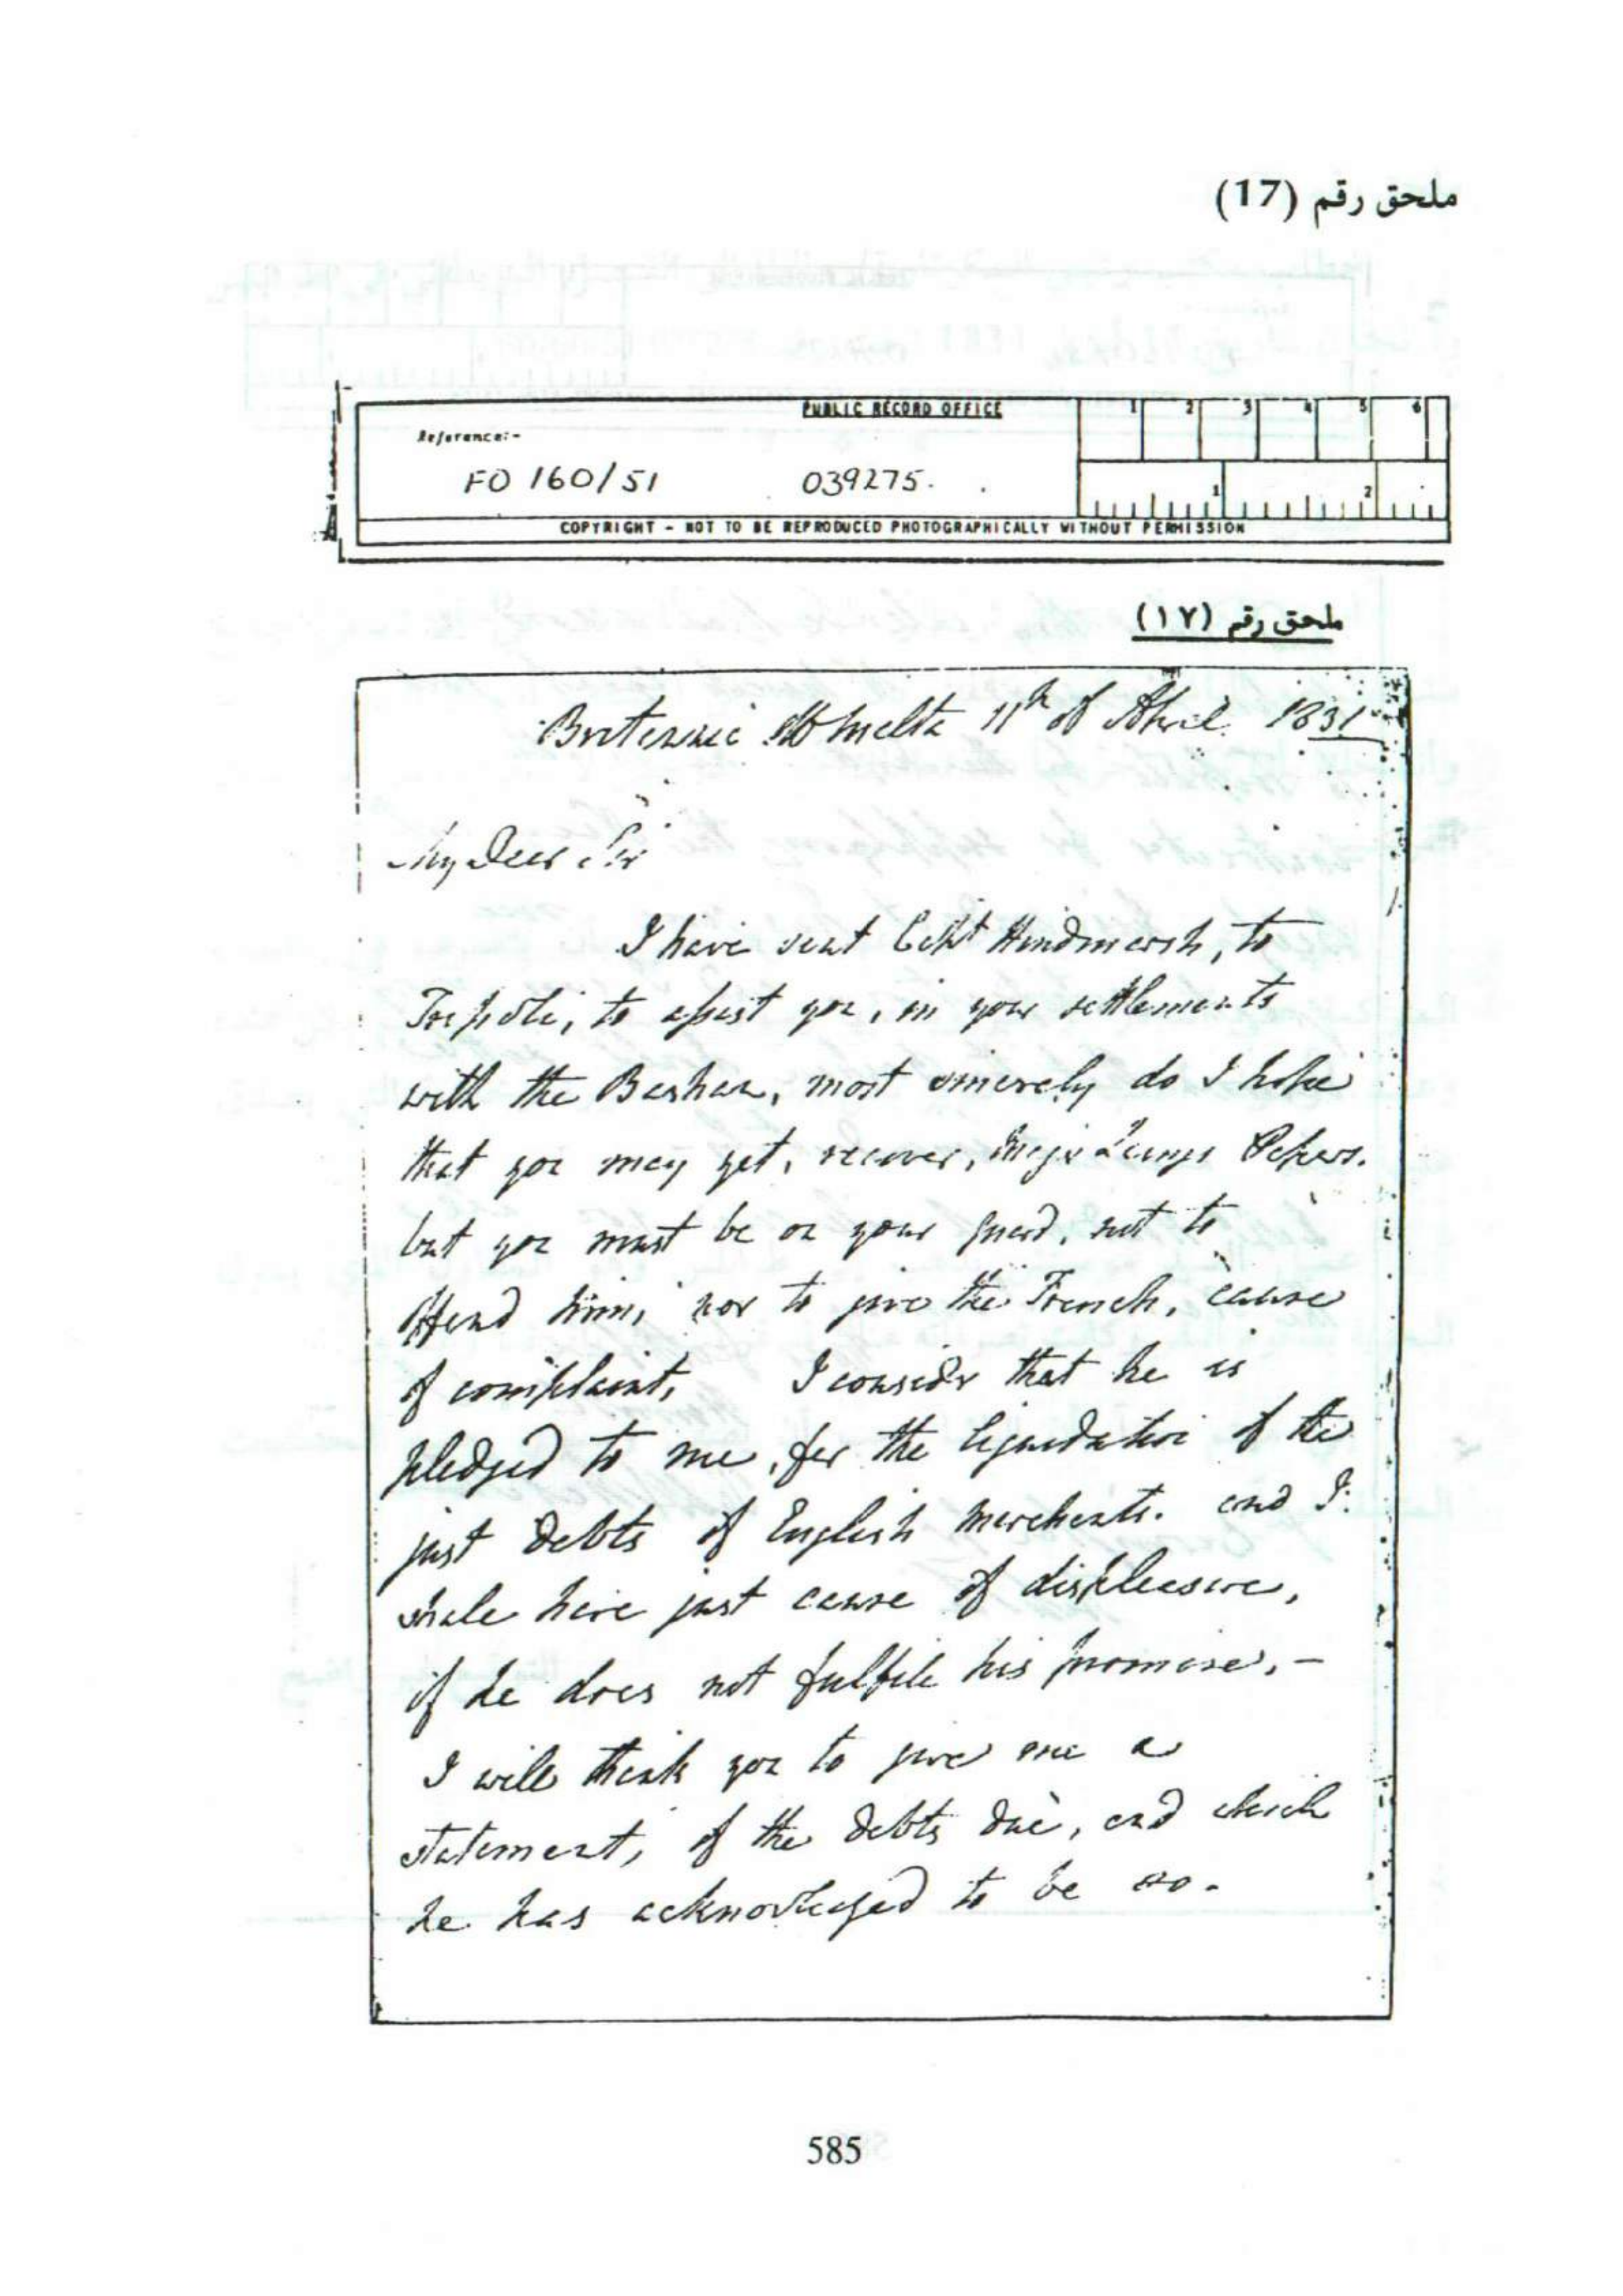 ملحق رقم (17)
PUBLIC RECORD OFFICE
1 2 3 4 5 6
Reference:-
FO 160/51 039275.
1 2
COPYRIGHT - NOT TO BE REPRODUCED PHOTOGRAPHICALLY WITHOUT PERMISSION
ملحق رقم (١٧)
Britannia Malta 11th of April 1831
My Dear Sir
I have sent Captt Hindmarsh, to
Tripoli, to assist you, in your settlements
with the Bashaw, most sincerely do I hope
that you may yet, recover, Major Laings Papers.
but you must be on your guard, not to
offend him, nor to give the French, cause
of complaint, I consider that he is
pledged to me, for the liquidation of the
just Debts of English Merchants. and I
shall have just cause of displeasure,
if he does not fulfill his promise, -
I will thank you to give me a
statement, of the Debts due, and which
he has acknowledged to be so.
585